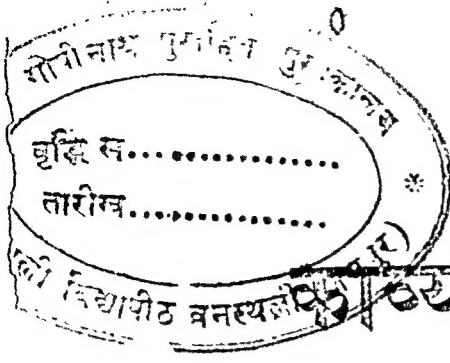 गोपीनाथ पुरोहित पुस्तकालय
वृद्धि स..................
तारीख..................
विद्यापीठ वनस्थली